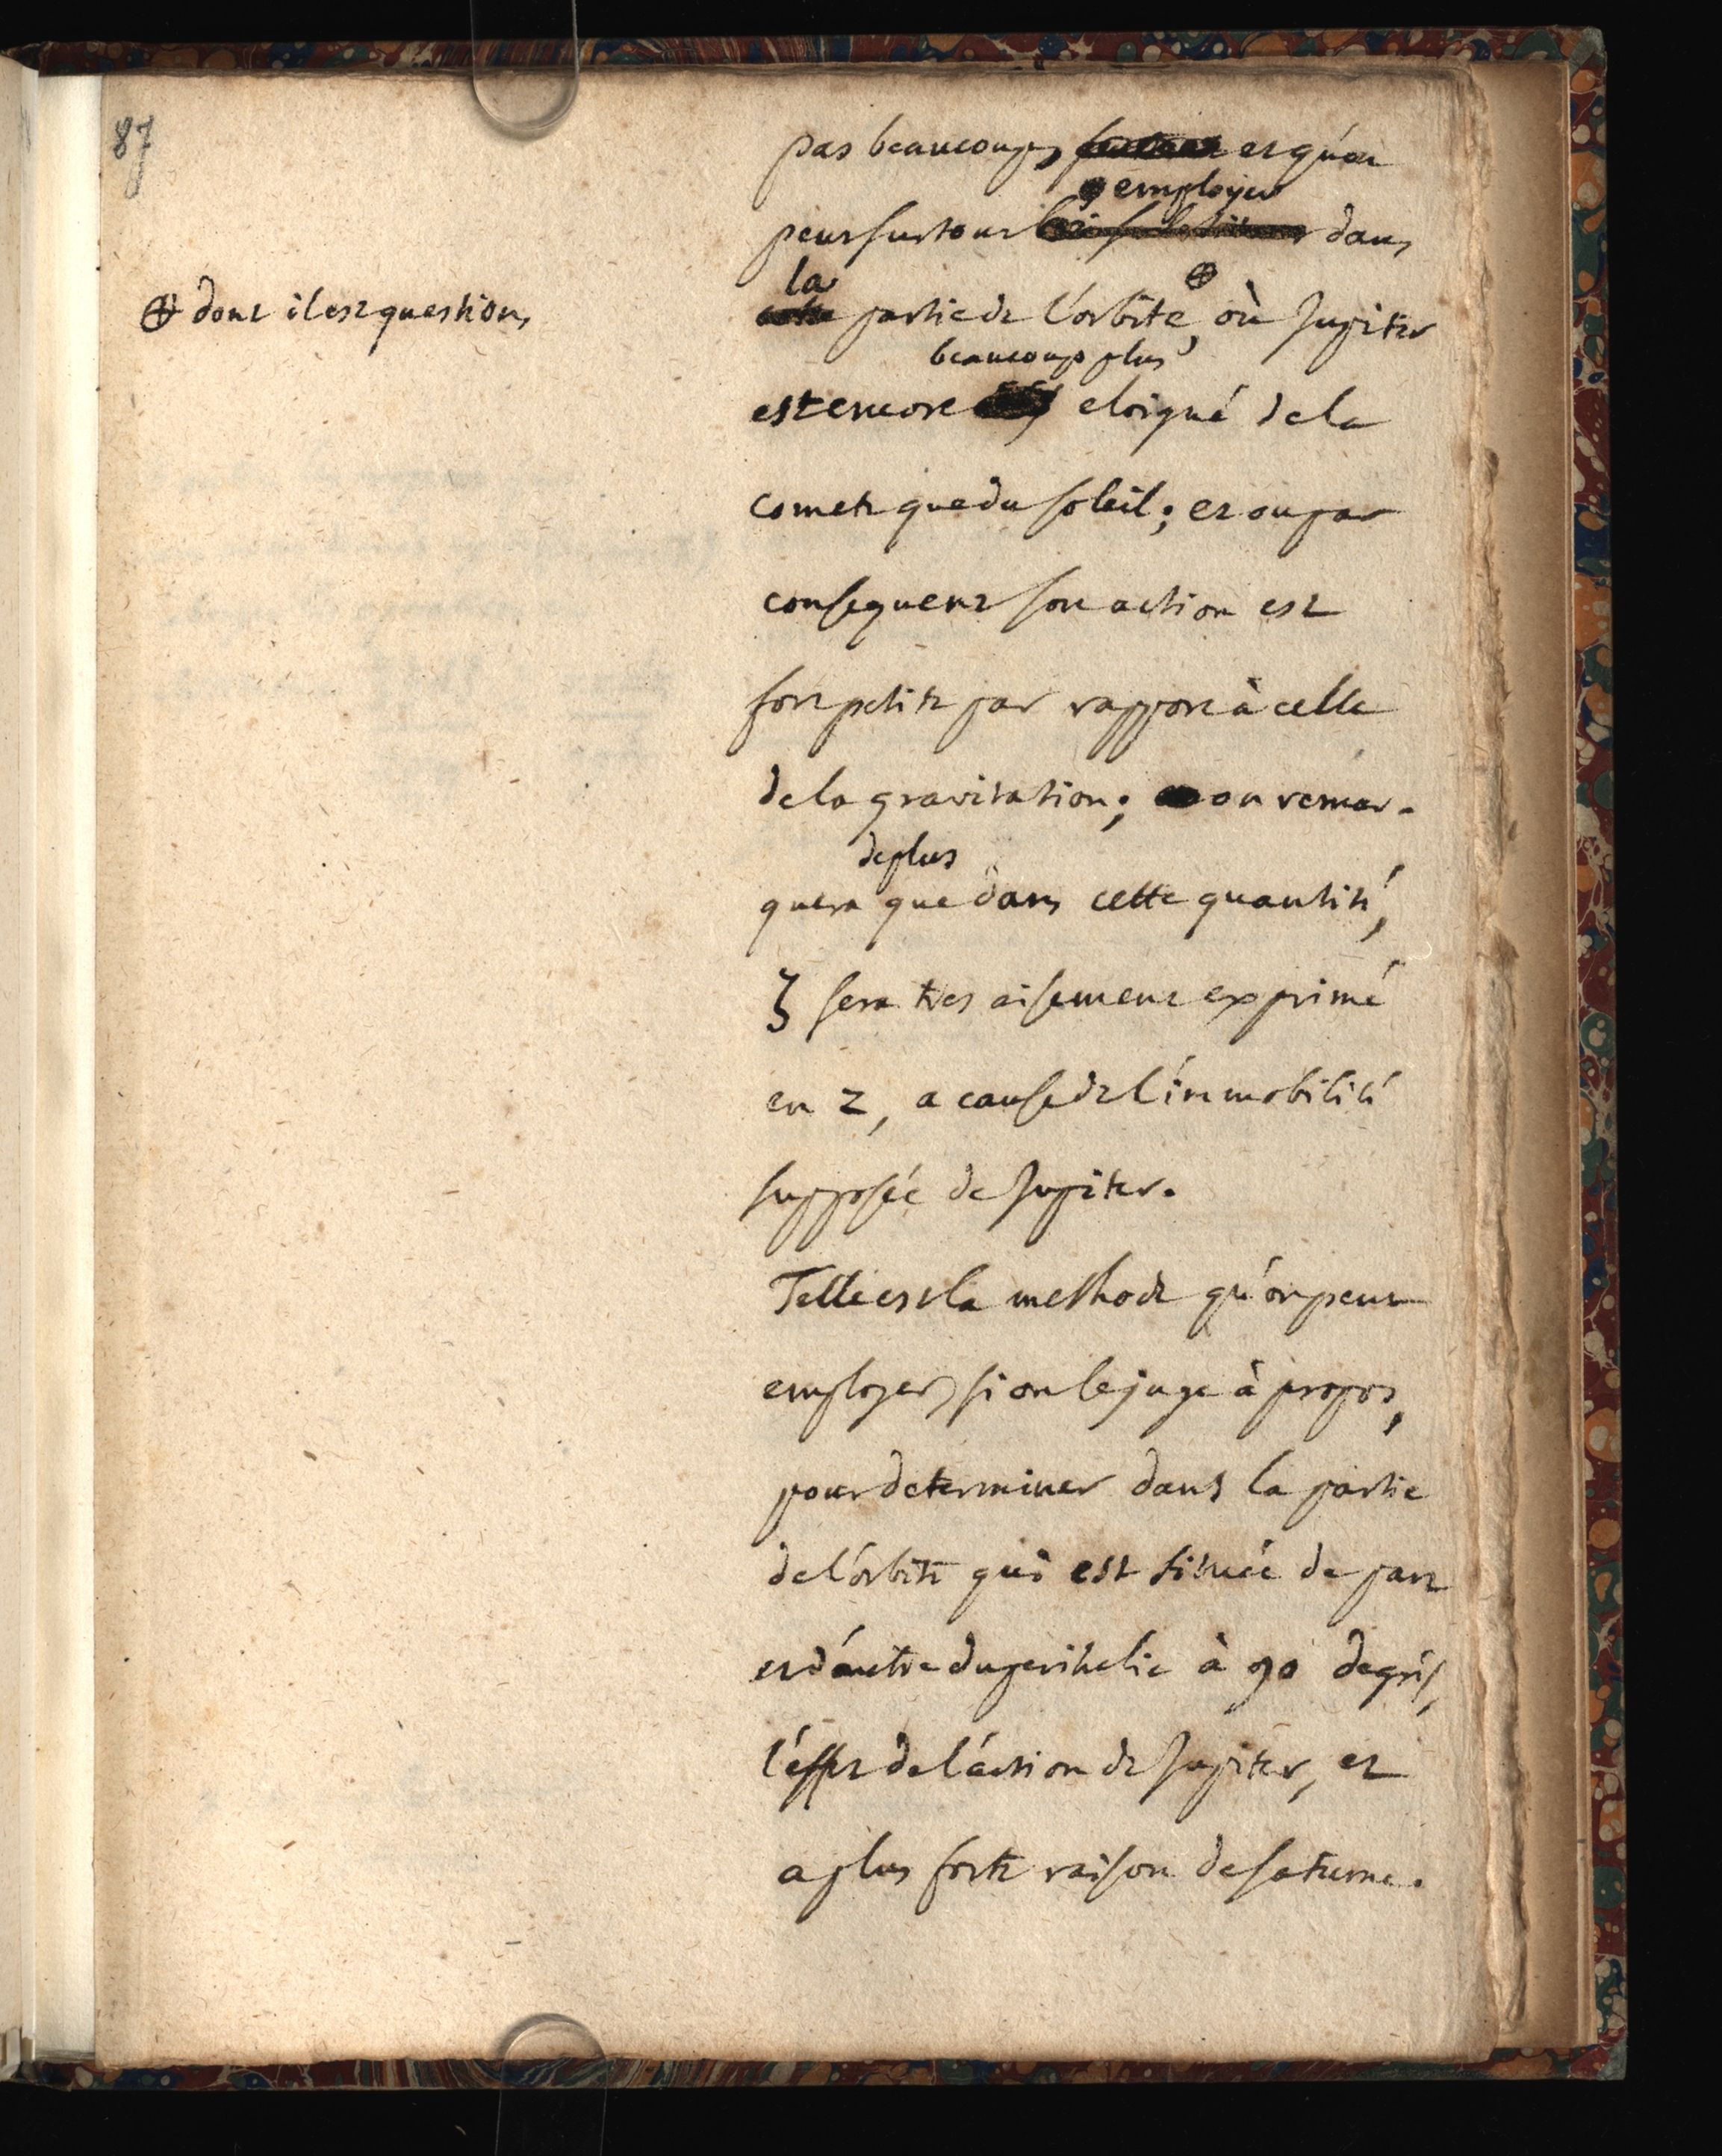 87
pas beaucoup, et qu'on
employer
peut surtout dans
la ⊕
⊕ dont il est question,
cette partie de l'orbite, où Jupiter
beaucoup plus
est encore eloigné de la
comete que du soleil; et ou par
consequent son action est
fort petite par rapport à celle
de la gravitation; on remar-
de plus
quera que dans cette quantité,
ζ sera tres aisement exprimé
en z, a cause de l'immobilité
supposée de Jupiter.
Telle est la methode qu'on peut
employer, si on le juge à propos,
pour determiner dans la partie
de l'orbite qui est située de part
et d'autre du perihelie à 90 degrés,
l'effet de l'action de Jupiter, et
a plus forte raison de saturne.